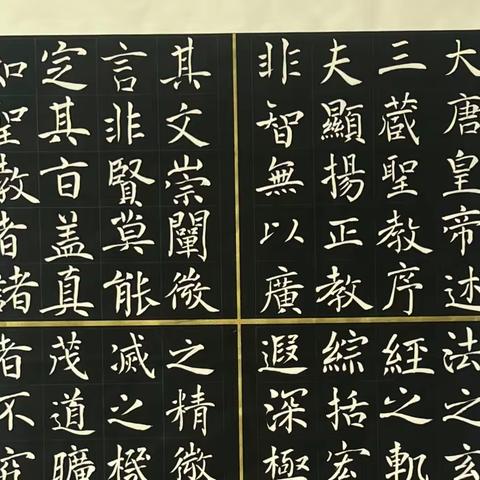 大唐皇帝述
三藏聖教序
夫顯揚正教
非智無以廣
其文崇闡微
言非賢莫能
定其旨蓋真
如聖教者諸
法之玄
經之軌
綜括宏
遐深極
之精微
滅之機
茂道曠
者不究